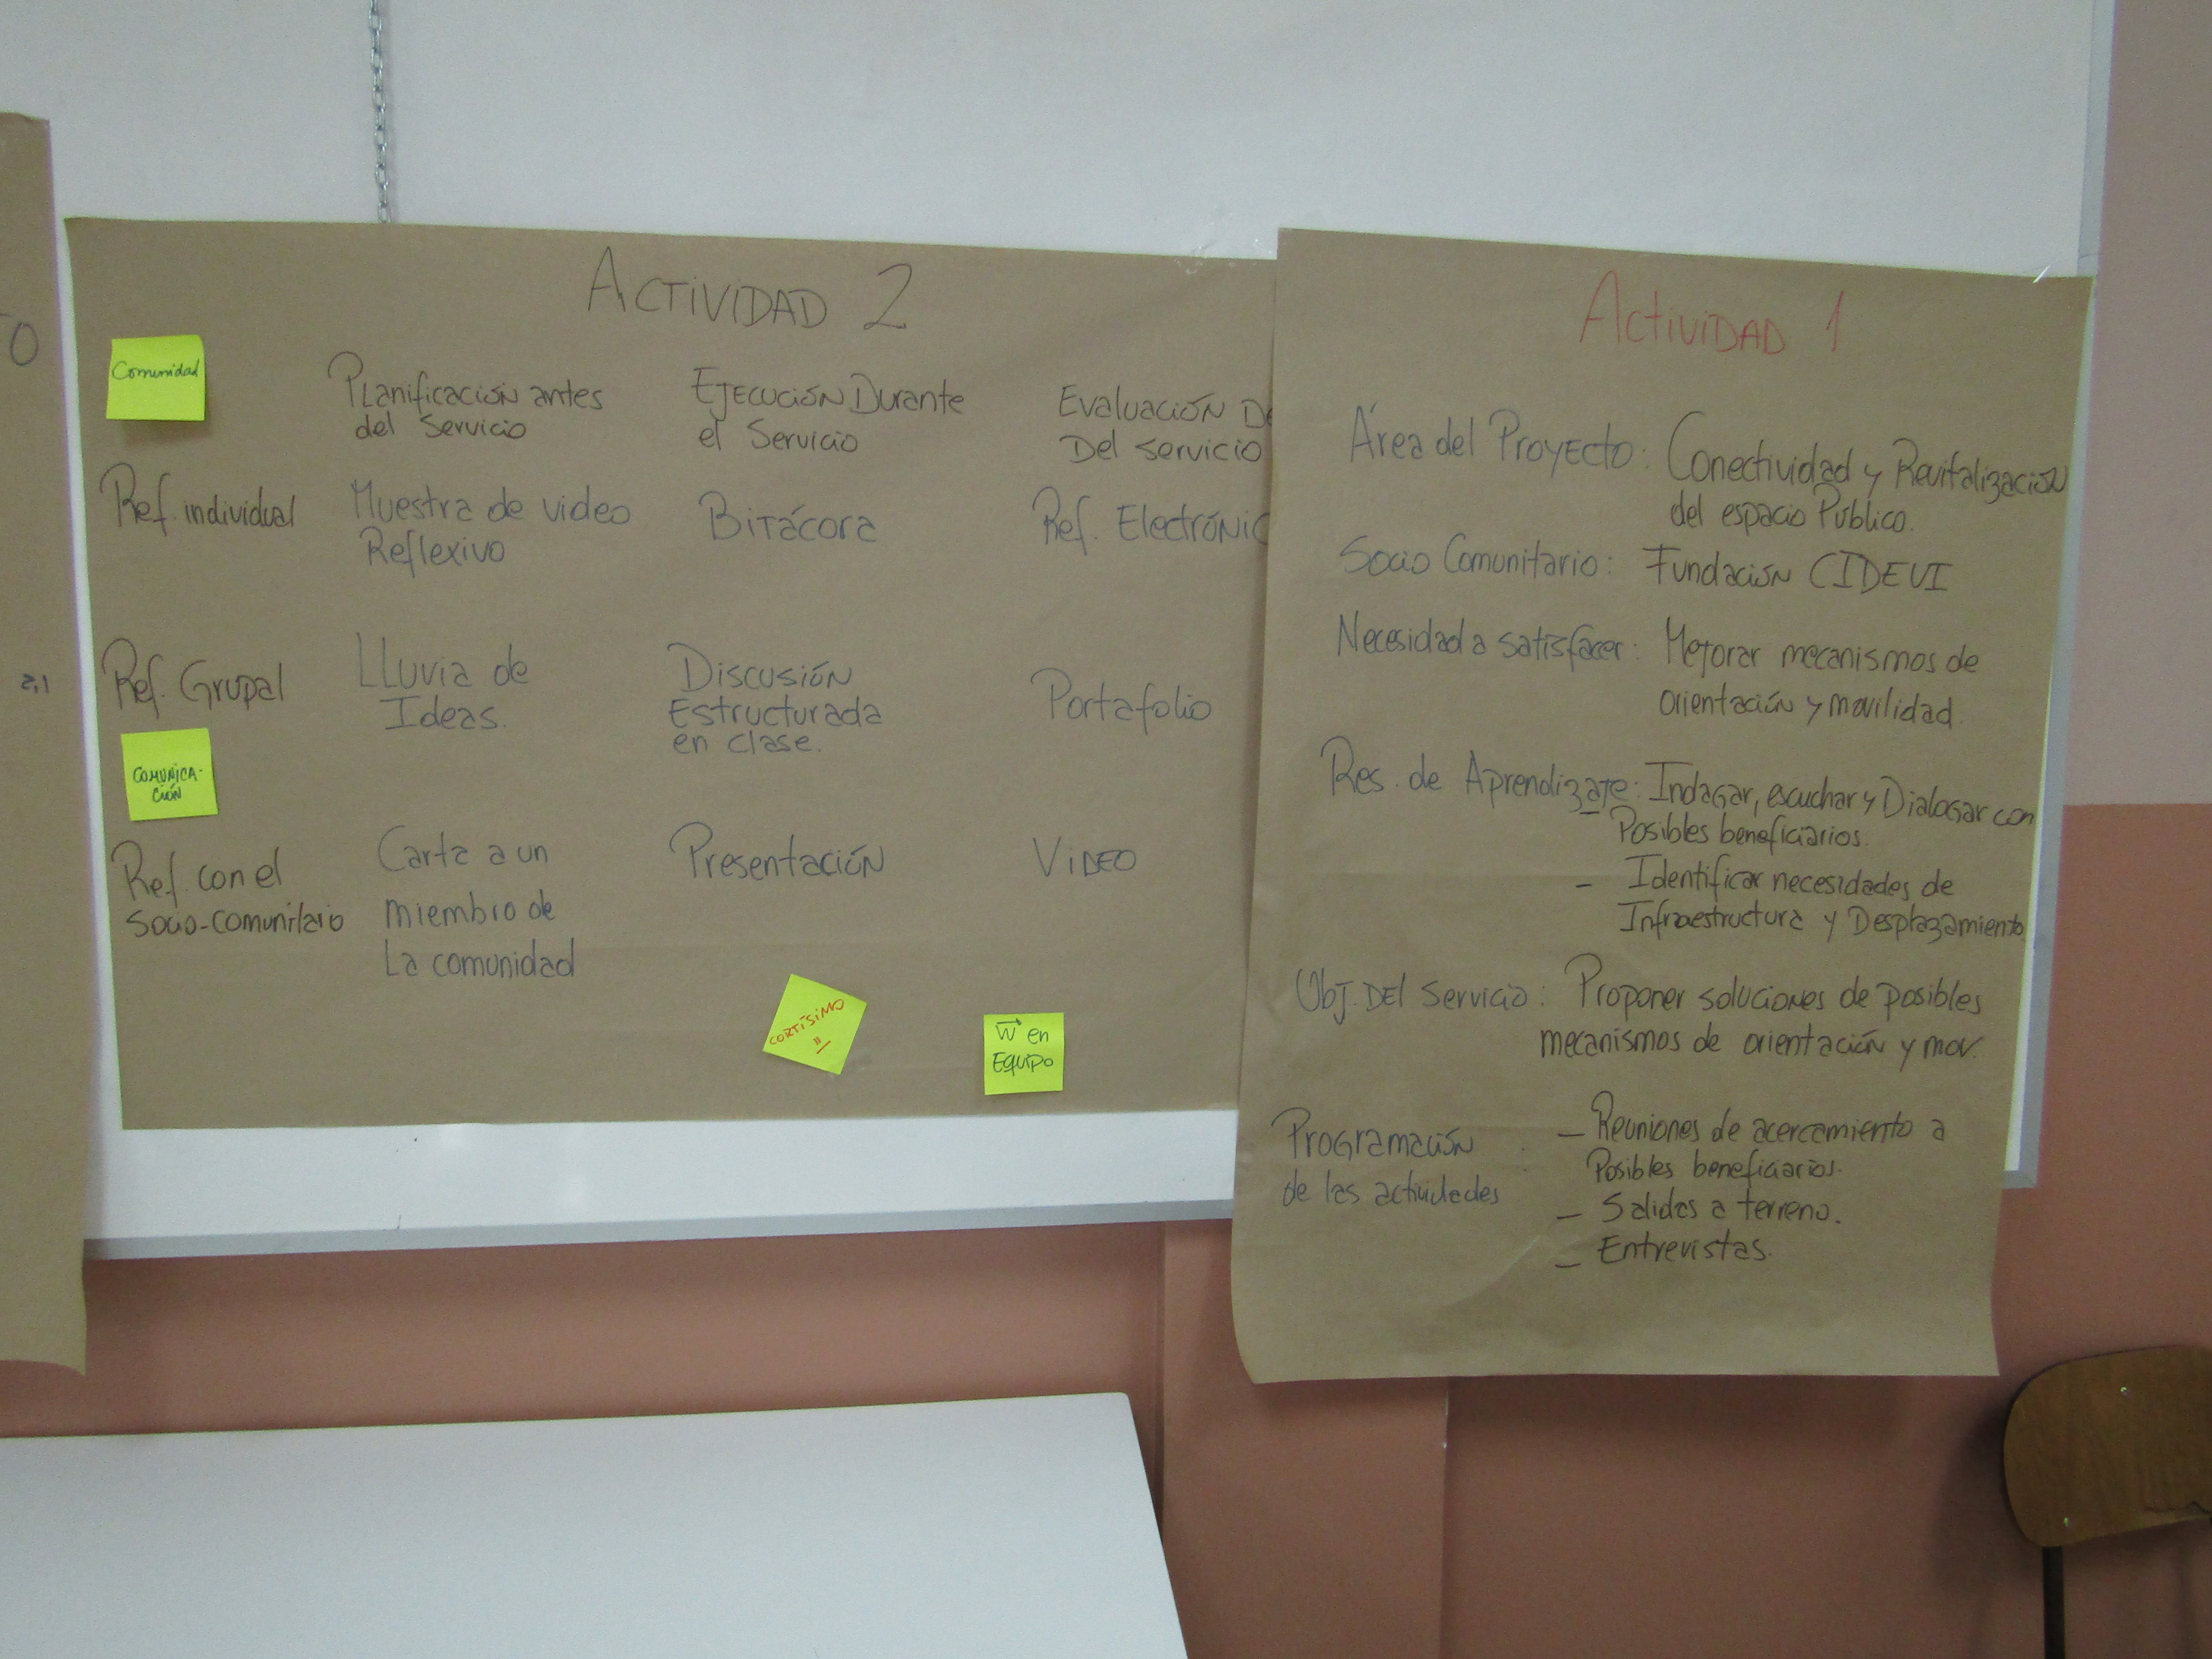 ACTIVIDAD 2
Comunidad
Planificación antes
del Servicio
Ejecución Durante
el Servicio
Evaluación De
Del servicio
Ref. individual
Muestra de video
Reflexivo
Bitácora
Ref. Electrónic
Ref. Grupal
Lluvia de
Ideas.
Discusión
Estructurada
en clase.
Portafolio
COMUNICA-
CIÓN
Ref. con el
Socio-comunitario
Carta a un
miembro de
La comunidad
Presentación
VIDEO
CORTÍSIMO
W en
Equipo
Actividad 1
Área del Proyecto: Conectividad y Revitalización
del espacio Público.
Socio Comunitario: Fundación CIDEVI
Necesidad a satisfacer: Mejorar mecanismos de
orientación y movilidad.
Res. de Aprendizaje: Indagar, escuchar y Dialogar con
Posibles beneficiarios.
- Identificar necesidades de
Infraestructura y Desplazamiento
Obj. Del Servicio: Proponer soluciones de posibles
mecanismos de orientación y mov.
Programación
de las actividades
- Reuniones de acercamiento a
Posibles beneficiarios.
- Salidas a terreno.
- Entrevistas.